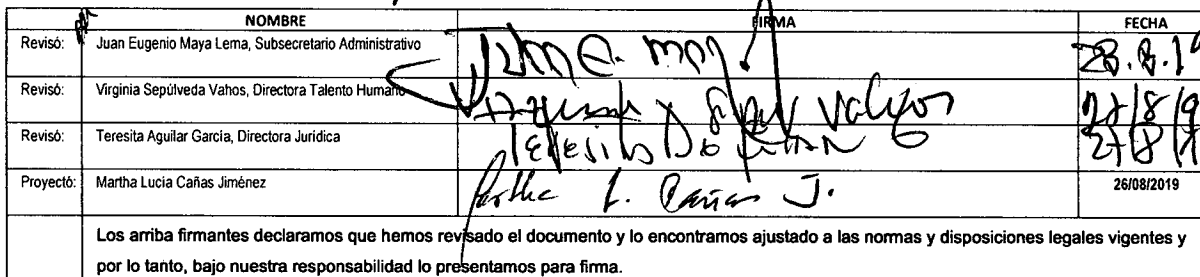 NOMBRE FIRMA FECHA
Revisó: Juan Eugenio Maya Lema, Subsecretario Administrativo 28.8.19
Revisó: Virginia Sepúlveda Vahos, Directora Talento Humano Vahos 27/8/19
Revisó: Teresita Aguilar García, Directora Jurídica Teresita 27/8/19
Proyectó: Martha Lucía Cañas Jiménez Martha L. Cañas J. 26/08/2019
Los arriba firmantes declaramos que hemos revisado el documento y lo encontramos ajustado a las normas y disposiciones legales vigentes y
por lo tanto, bajo nuestra responsabilidad lo presentamos para firma.